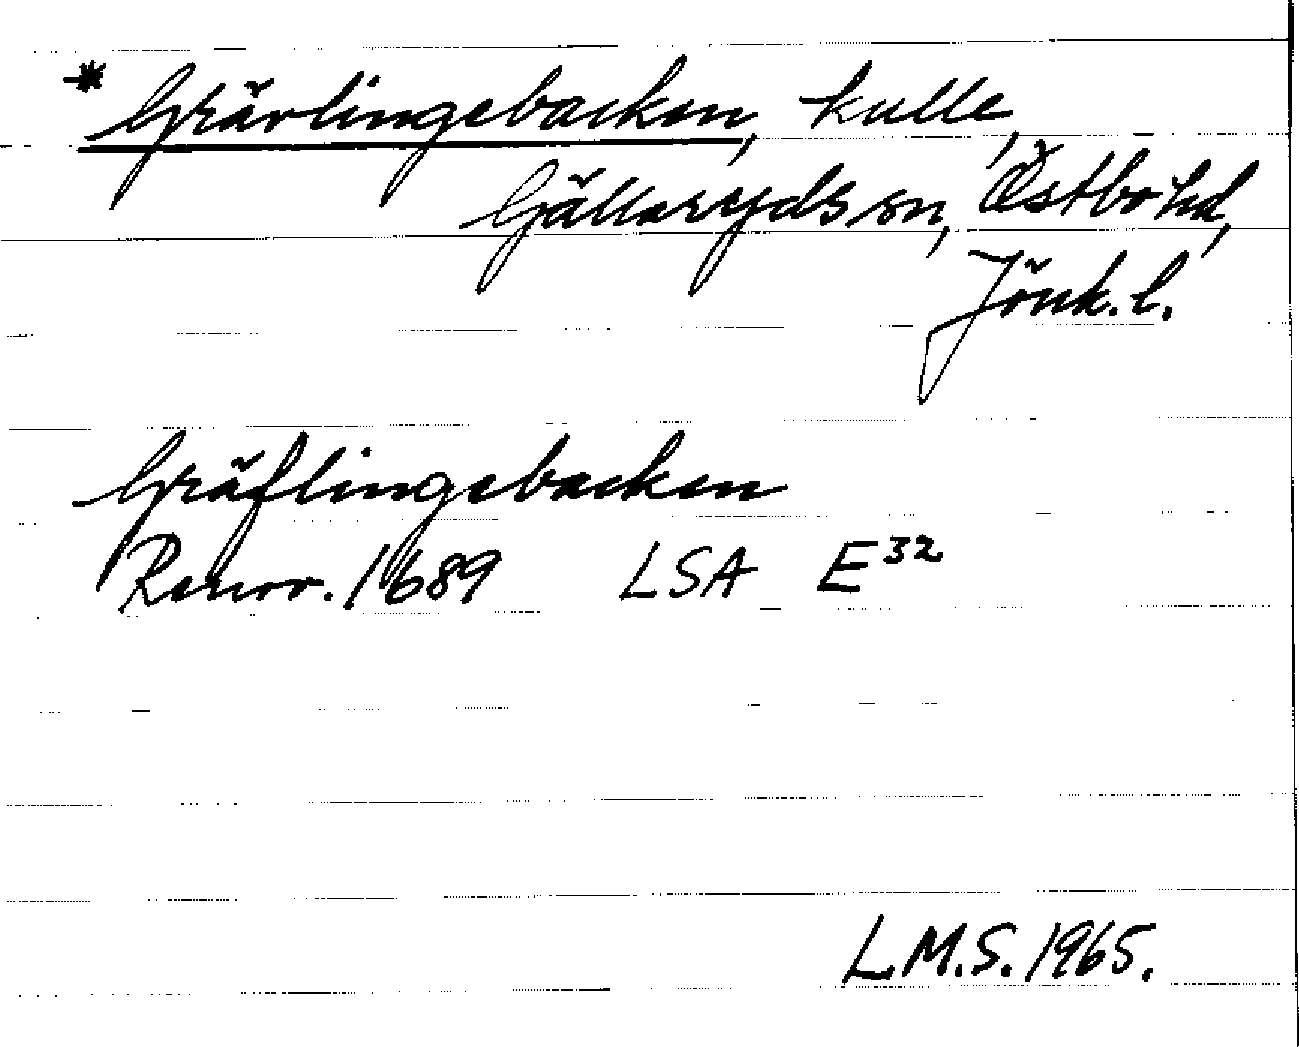 * Grävlingebacken, kulle,
Gällaryds sn, Östbo hd,
Jönk. l.
Gräflingebacken
Renov. 1689 LSA E32
L.M.S. 1965.